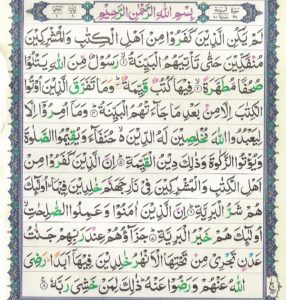 بِسْمِ اللهِ الرَّحْمٰنِ الرَّحِيْمِ
لَمْ يَكُنِ الَّذِيْنَ كَفَرُوْا مِنْ اَهْلِ الْكِتٰبِ وَالْمُشْرِكِيْنَ
مُنْفَكِّيْنَ حَتّٰى تَاْتِيَهُمُ الْبَيِّنَةُ ۙ رَسُوْلٌ مِّنَ اللهِ يَتْلُوْا
صُحُفًا مُّطَهَّرَةً ۙ فِيْهَا كُتُبٌ قَيِّمَةٌ ؕ وَمَا تَفَرَّقَ الَّذِيْنَ اُوْتُوا
الْكِتٰبَ اِلَّا مِنْۢ بَعْدِ مَا جَآءَتْهُمُ الْبَيِّنَةُ ؕ وَمَاۤ اُمِرُوْۤا اِلَّا
لِيَعْبُدُوا اللهَ مُخْلِصِيْنَ لَهُ الدِّيْنَ ۙ حُنَفَآءَ وَيُقِيْمُوا الصَّلٰوةَ
وَيُؤْتُوا الزَّكٰوةَ وَذٰلِكَ دِيْنُ الْقَيِّمَةِ ؕ اِنَّ الَّذِيْنَ كَفَرُوْا مِنْ
اَهْلِ الْكِتٰبِ وَالْمُشْرِكِيْنَ فِيْ نَارِ جَهَنَّمَ خٰلِدِيْنَ فِيْهَا ؕ اُولٰٓئِكَ
هُمْ شَرُّ الْبَرِيَّةِ ؕ اِنَّ الَّذِيْنَ اٰمَنُوْا وَعَمِلُوا الصّٰلِحٰتِ ۙ
اُولٰٓئِكَ هُمْ خَيْرُ الْبَرِيَّةِ ؕ جَزَآؤُهُمْ عِنْدَ رَبِّهِمْ جَنّٰتُ
عَدْنٍ تَجْرِيْ مِنْ تَحْتِهَا الْاَنْهٰرُ خٰلِدِيْنَ فِيْهَاۤ اَبَدًا ؕ رَضِيَ
اللهُ عَنْهُمْ وَرَضُوْا عَنْهُ ؕ ذٰلِكَ لِمَنْ خَشِيَ رَبَّهٗ